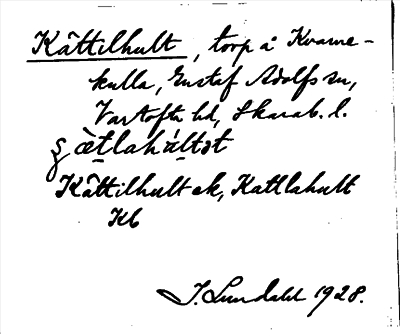 Kättilhult, torp å Kvarne-
kulla, Gustaf Adolfs sn,
Vartofta hd, Skarab. l.
Kättilhult ek, Kattlahult
Kb
I. Lundahl 1928.